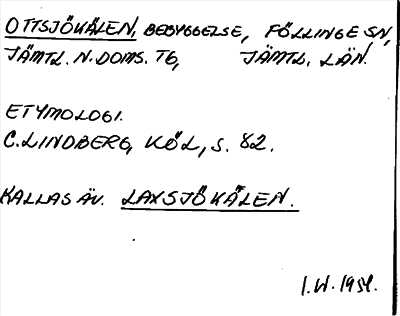 OTTSJÖKÄLEN, BEBYGGELSE, FÖLLINGE SN,
JÄMTL. N. DOMS. TG, JÄMTL. LÄN.
ETYMOLOGI.
C. LINDBERG, KÖL, S. 82.
KALLAS ÄV. LAXSJÖKÄLEN.
I.W. 1951.